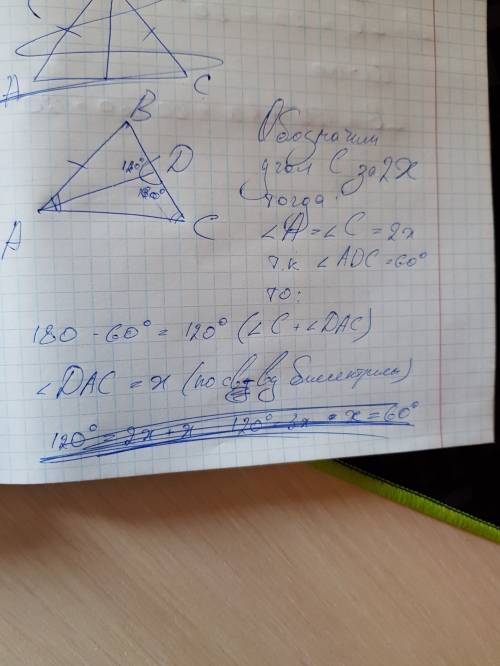 A C
B
120° D
180°
A C
Обозначим
угол C за 2x
тогда:
∠A = ∠C = 2x
т.к. ∠ADC = 60°
то:
180 - 60° = 120° (∠C + ∠DAC)
∠DAC = x (по св-ву биссектрисы)
120° = 2x + x 120° 3x x = 60°